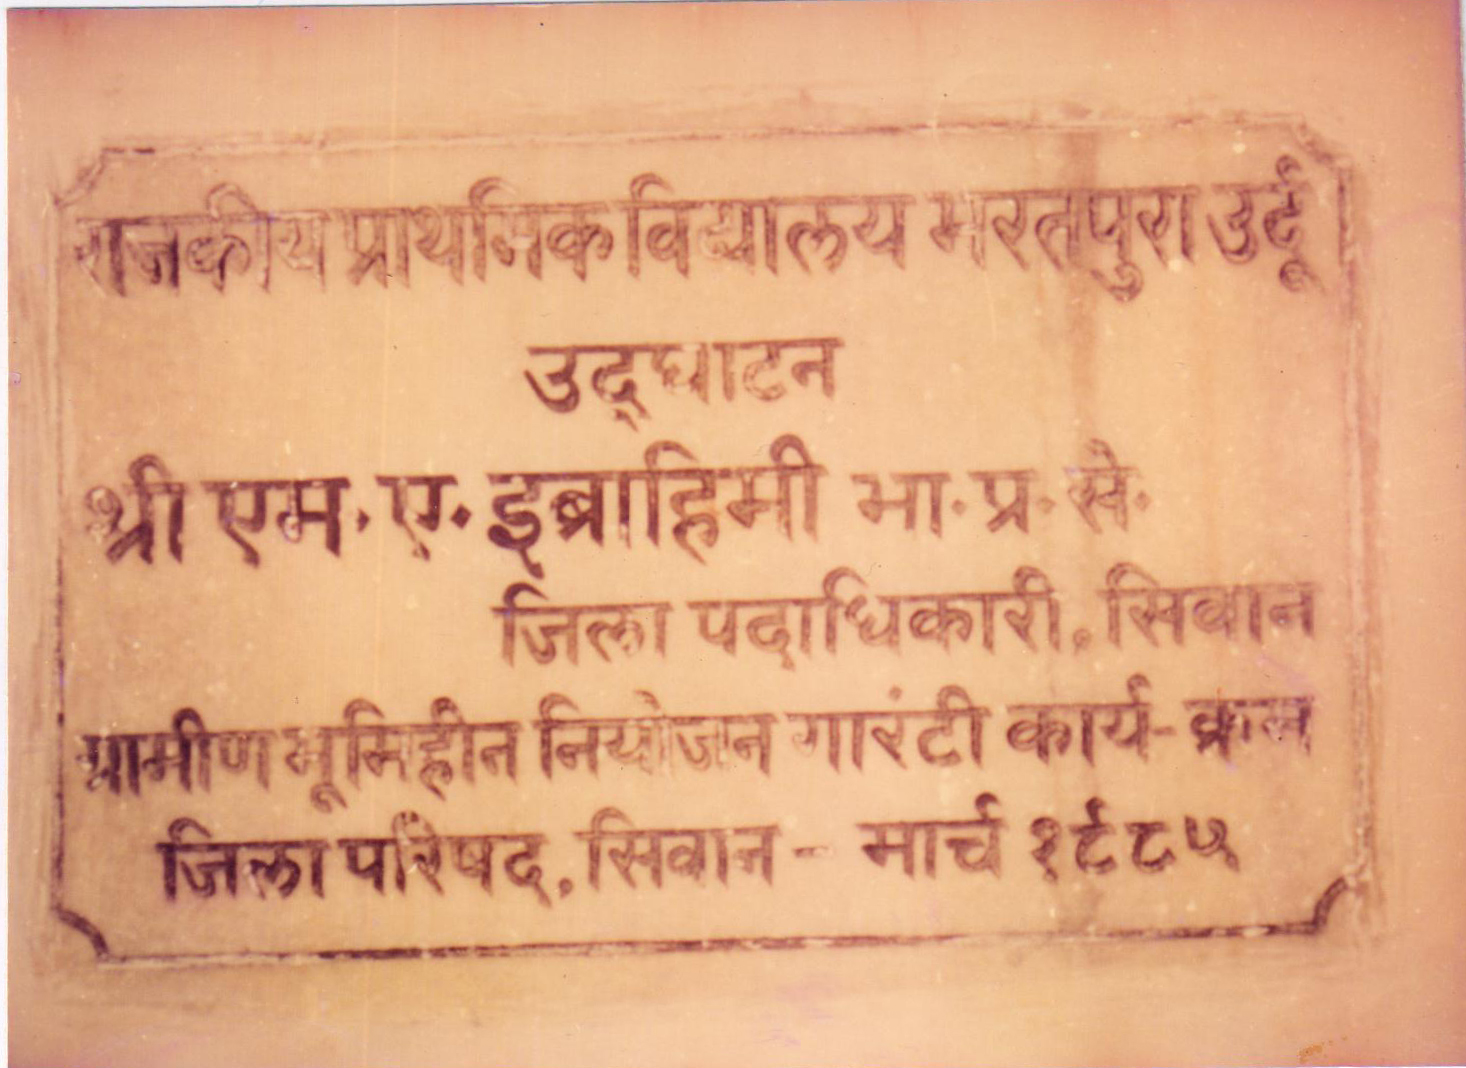 राजकीय प्राथमिक विद्यालय भरतपुरा उर्दू
उद्‌घाटन
श्री एम. ए. इब्राहिमी भा. प्र. से.
जिला पदाधिकारी, सिवान
ग्रामीण भूमिहीन नियोजन गारंटी कार्य-क्रम
जिला परिषद, सिवान - मार्च १९८५